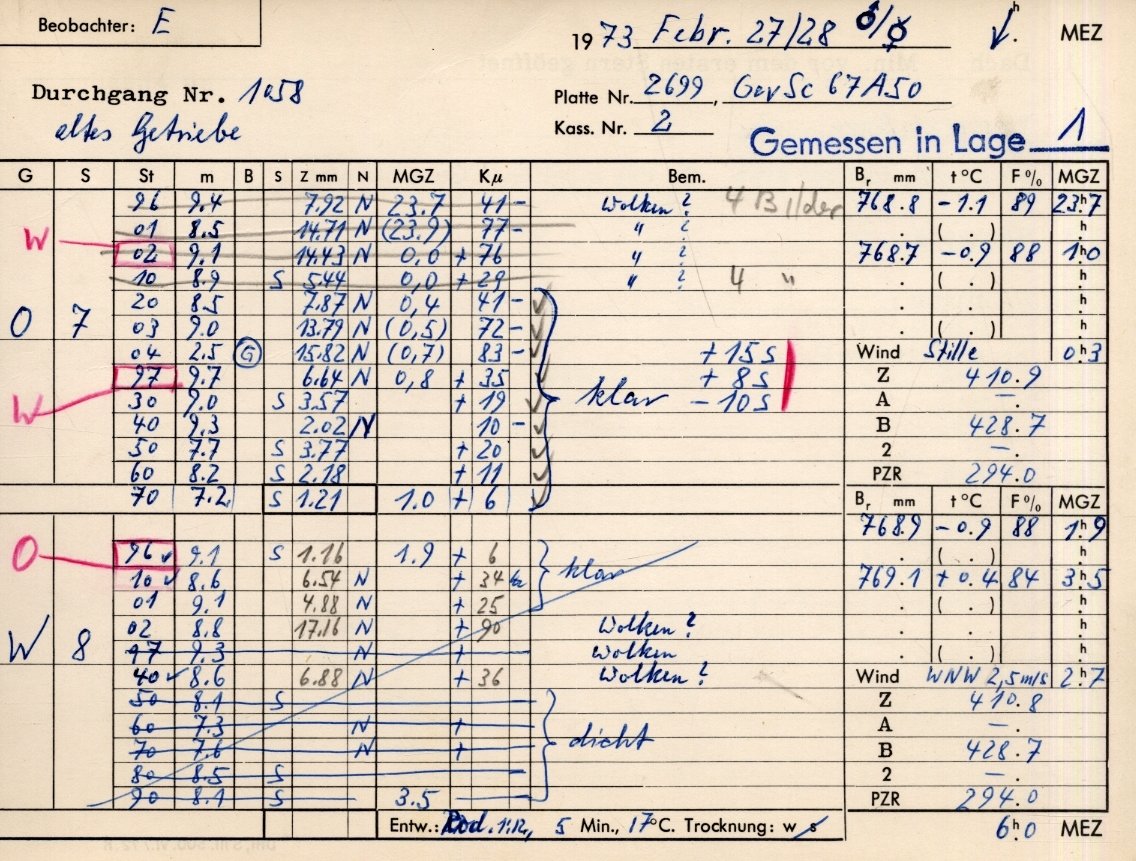 Beobachter: E
1973 Febr. 27/28 ♂/☿ h MEZ
Durchgang Nr. 1058
Platte Nr. 2699, GevSc 67A50
altes Getriebe
Kass. Nr. 2
Gemessen in Lage 1
G S St m B S Z mm N MGZ Kμ Bem. Br mm t °C F % MGZ
96 9.4 7.92 N 23.7 41 - Wolken? 4 Bilder 768.8 -1.1 89 23h7
W 01 8.5 14.71 N (23.9) 77 - " ? . ( . ) h
02 9.1 14.43 N 0,0 + 76 " ? 768.7 -0.9 88 1h0
10 8.9 S 5.44 0,0 + 29 " ? 4 " . ( . ) h
20 8.5 7.87 N 0,4 41 - h
O 7 03 9.0 13.79 N (0,5) 72 - . ( . ) h
04 2.5 G 15.82 N (0,7) 83 - + 15s Wind Stille 0h3
97 9.7 6.64 N 0,8 + 35 + 8s Z 410.9
W 30 9.0 S 3.57 + 19 klar - 10s A — .
40 9.3 2.02 N 10 - B 428.7
50 7.7 S 3.77 + 20 2 — .
60 8.2 S 2.18 + 11 PZR 294.0
70 7.2 S 1.21 1.0 + 6 Br mm t °C F % MGZ
768.9 -0.9 88 1h9
O 96 9.1 S 1.16 1.9 + 6 . ( . ) h
10 8.6 6.54 N + 34 klar 769.1 + 0.4 84 3h5
01 9.1 4.88 N + 25 . ( . ) h
02 8.8 17.16 N + 90 Wolken? h
W 8 97 9.3 N + Wolken . ( . ) h
40 8.6 6.88 N + 36 Wolken? Wind WNW 2,5 m/s 2h7
50 8.1 S - Z 410.8
60 7.3 N + A — .
70 7.6 N + dicht B 428.7
80 8.5 S - 2 — .
90 8.1 S 3.5 - PZR 294.0
Entw.: Rod. 1:12, 5 Min., 17°C. Trocknung: w s 6h0 MEZ